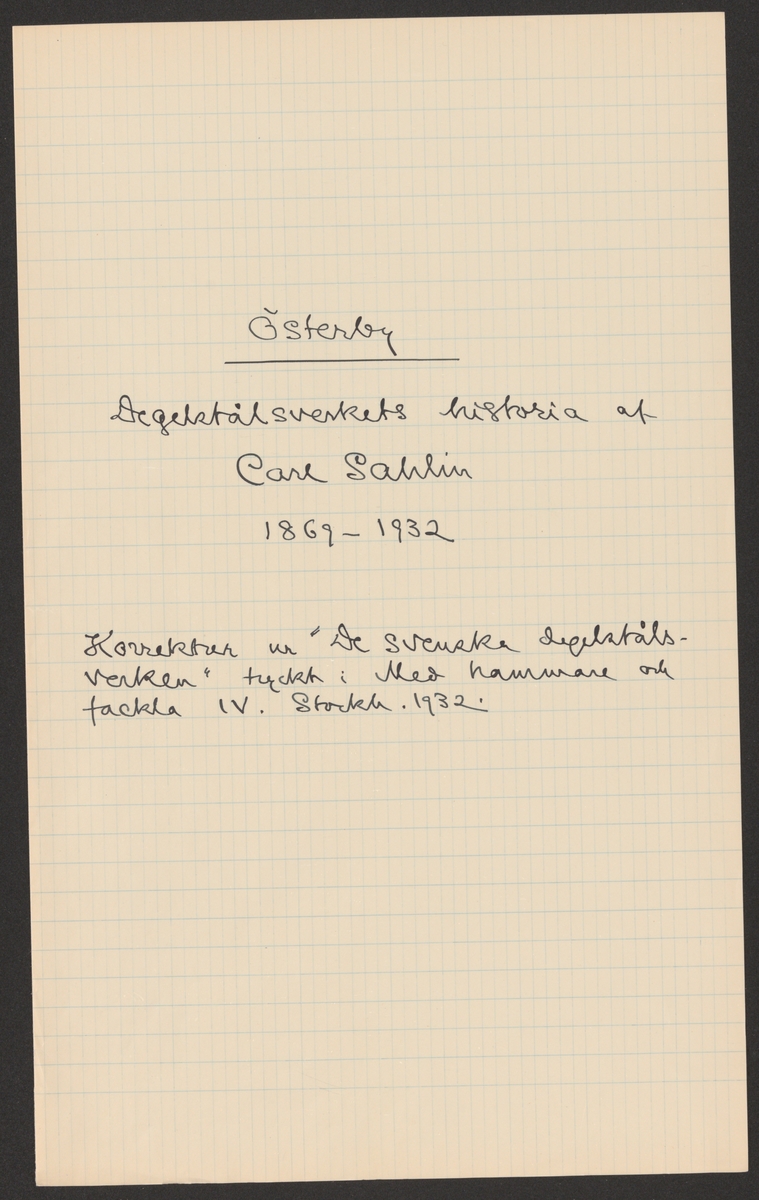 Österby
Degelstålsverkets historia af
Carl Sahlin
1869 – 1932
Korrektur ur "De svenska degelståls-
verken" tryckt i Med hammare och
fackla IV. Stockh. 1932.